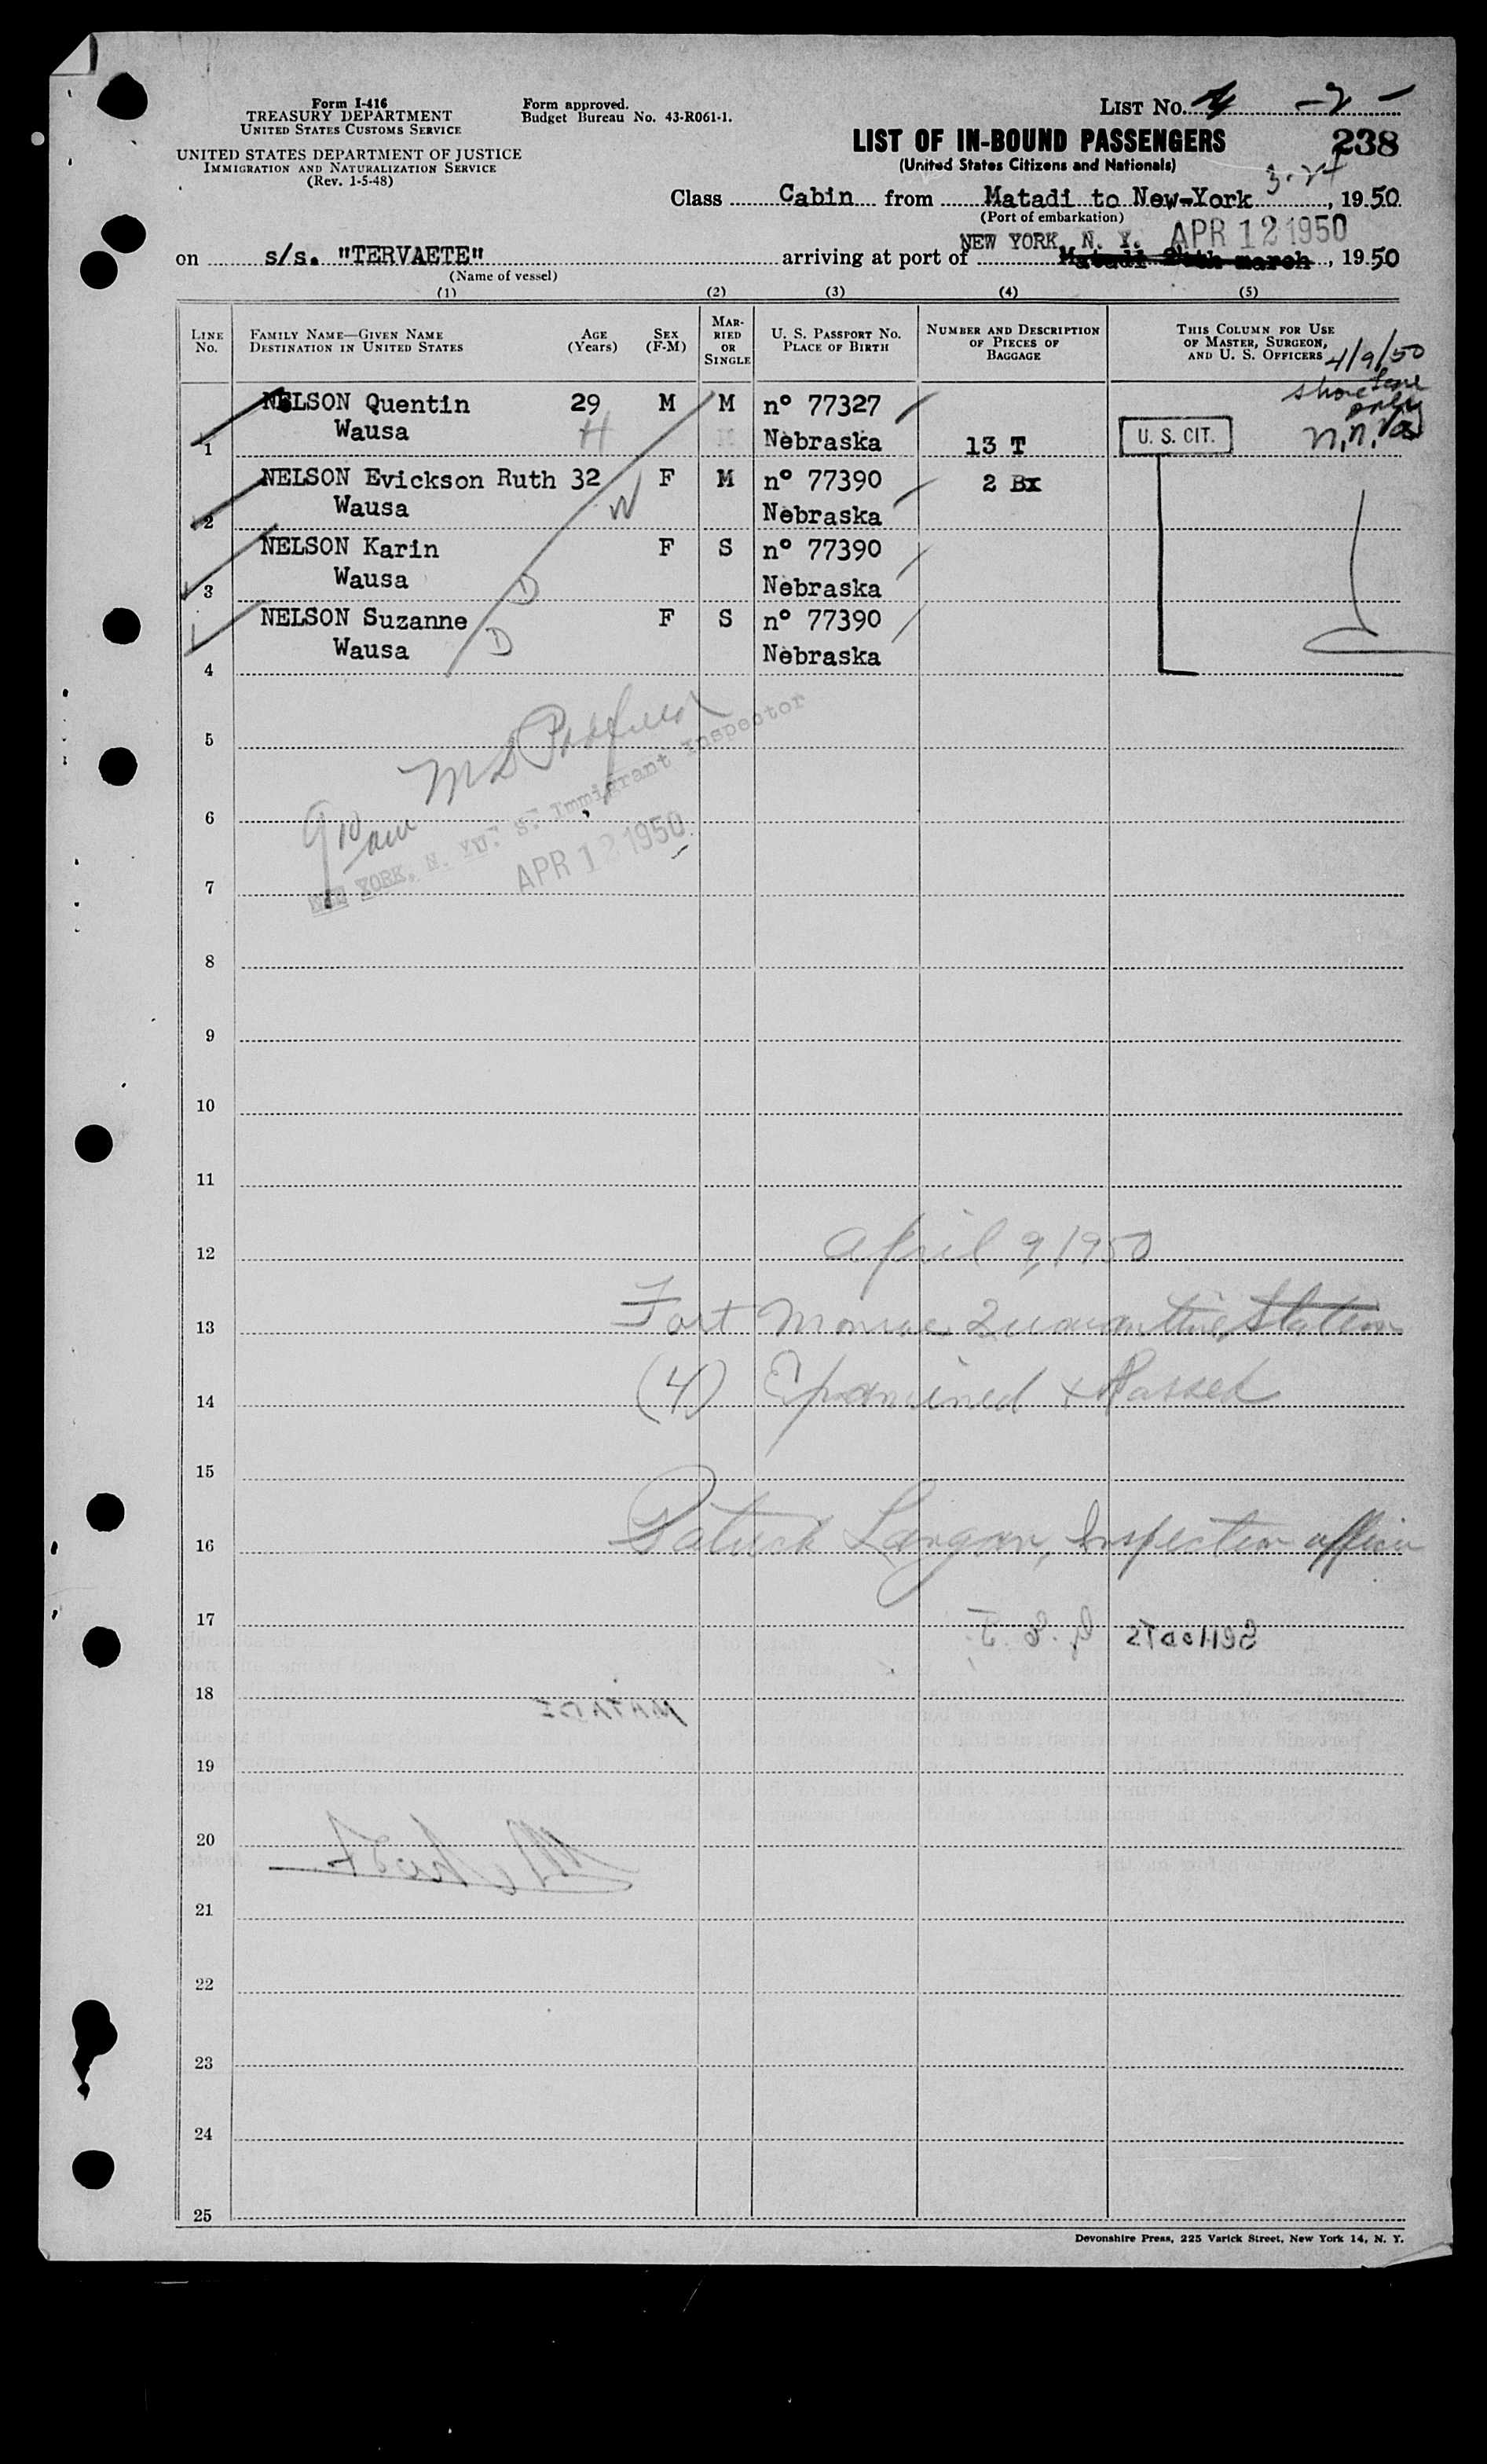 Form I-416
TREASURY DEPARTMENT
UNITED STATES CUSTOMS SERVICE
UNITED STATES DEPARTMENT OF JUSTICE
IMMIGRATION AND NATURALIZATION SERVICE
(Rev. 1-5-48)
Form approved.
Budget Bureau No. 43-R061-1.
LIST No. 2
LIST OF IN-BOUND PASSENGERS 238
(United States Citizens and Nationals)
3-24
Class Cabin from Matadi to New-York, 1950
(Port of embarkation)
NEW YORK, N. Y. APR 12 1950
on s/s. "TERVAETE" arriving at port of Matadi 24th march, 1950
(Name of vessel)
(1) (2) (3) (4) (5)
LINE No.
FAMILY NAME—GIVEN NAME
DESTINATION IN UNITED STATES
AGE (Years)
SEX (F-M)
MARRIED OR SINGLE
U. S. PASSPORT NO.
PLACE OF BIRTH
NUMBER AND DESCRIPTION OF PIECES OF BAGGAGE
THIS COLUMN FOR USE OF MASTER, SURGEON, AND U. S. OFFICERS
4/9/50
shore leave only
n,n, Va
1 NELSON Quentin 29 M M nº 77327
Wausa H Nebraska 13 T U. S. CIT.
2 NELSON Evickson Ruth 32 F M nº 77390 2 Bx
Wausa W Nebraska
3 NELSON Karin F S nº 77390
Wausa D Nebraska
4 NELSON Suzanne F S nº 77390
Wausa D Nebraska
5
6
7
9 10 am
NEW YORK, N. Y. U. S. Immigrant Inspector
APR 12 1950
8
9
10
11
12 April 9, 1950
13 Fort Monroe Quarantine Station
14 (4) Examined & Passed
15
16 Patrick Langan, Inspection officer
17
18 MATADI
19
20
21
22
23
24
25
Devonshire Press, 225 Varick Street, New York 14, N. Y.